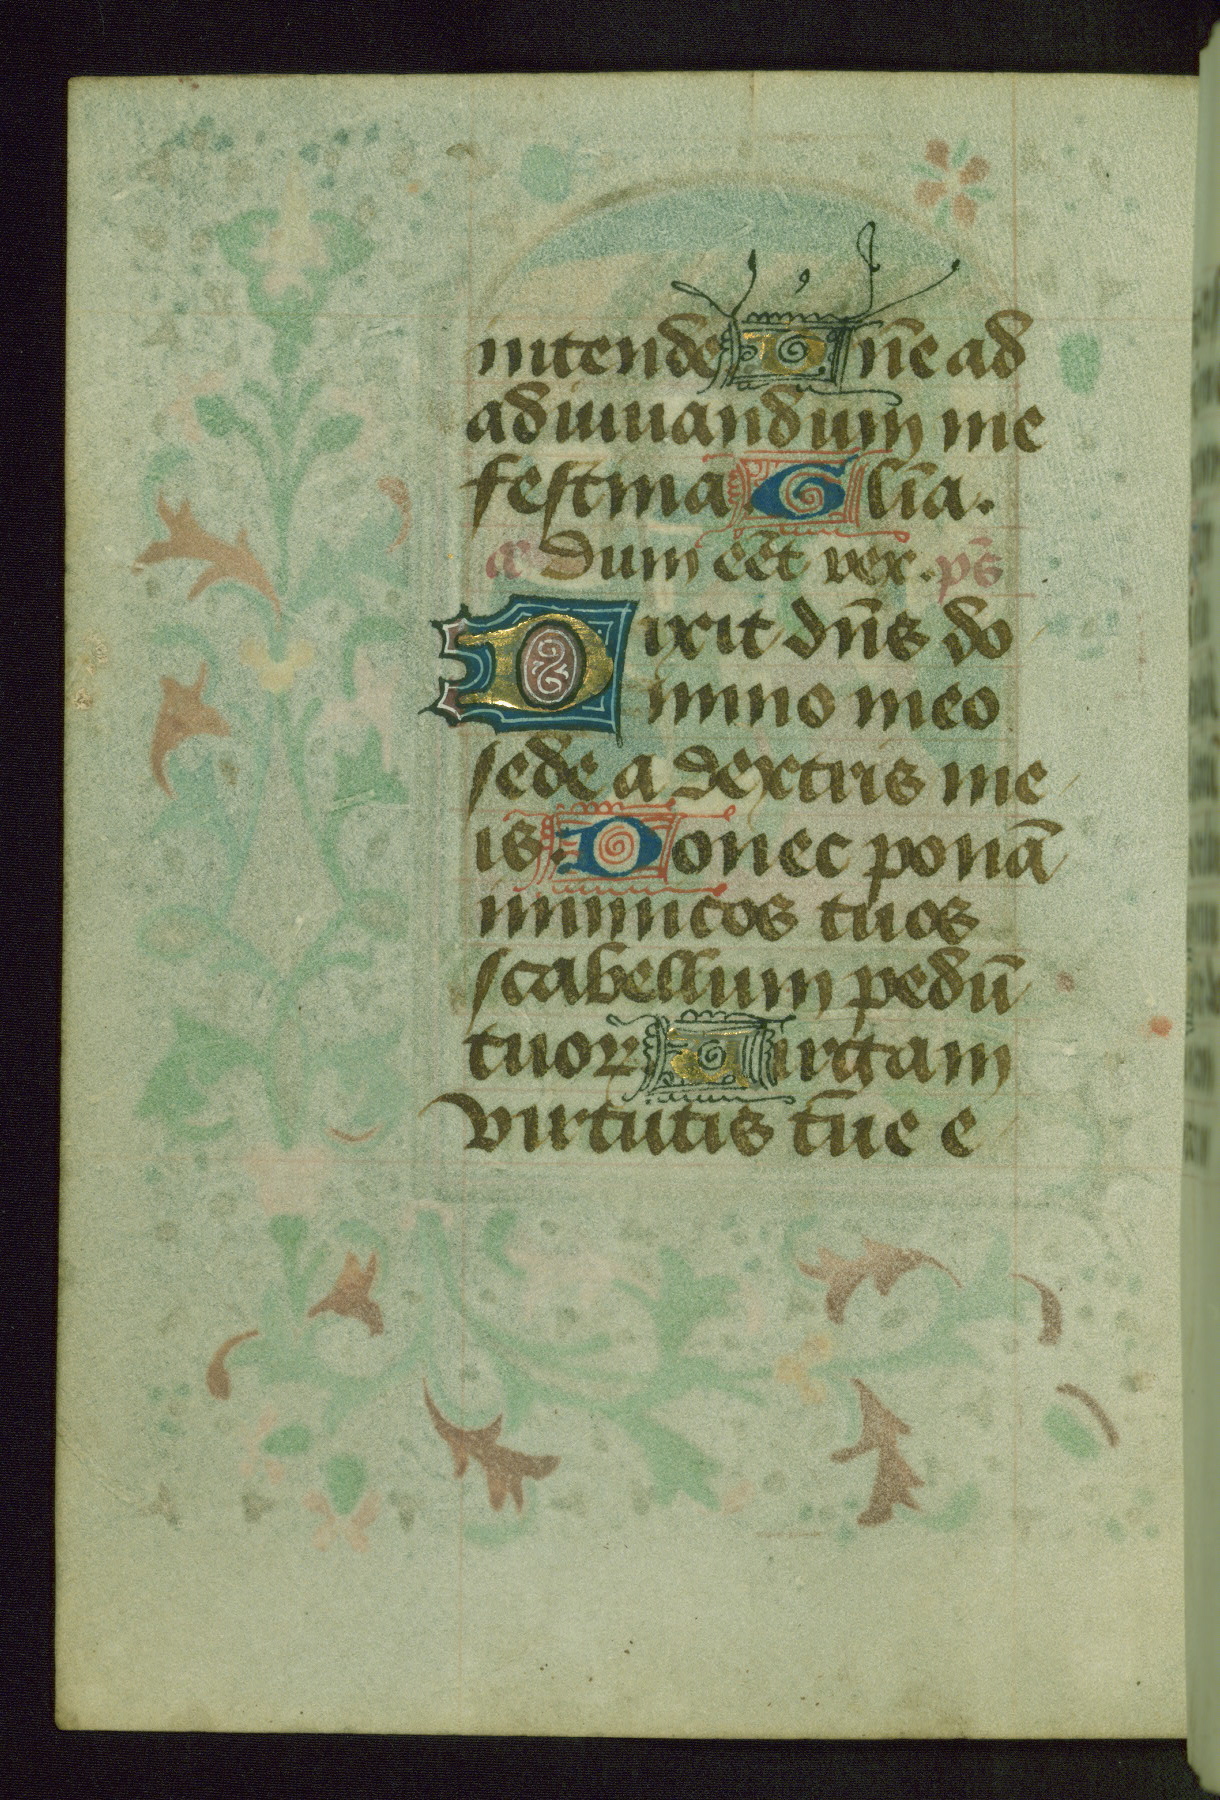 intende Dn̄e ad
adiuuandum me
festina Glīa.
añ Dum eēt rex. ps̄
Dixit dn̄s do
mino meo
sede a dextris me
is: Donec ponā
inimicos tuos
scabellum pedū
tuoꝝ Virgam
virtutis tue e